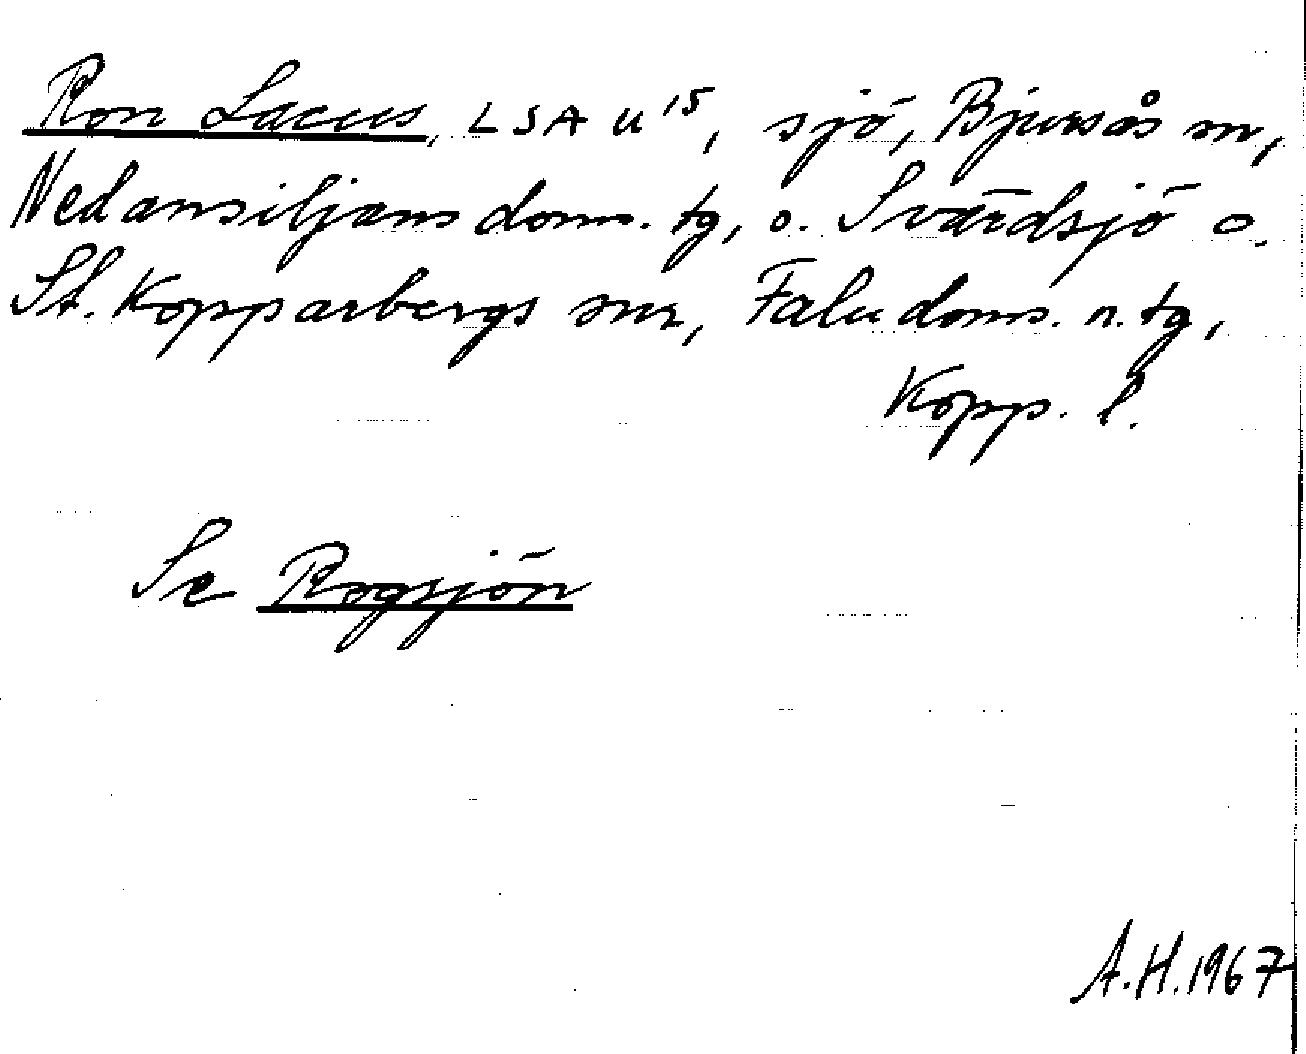 Ron Lacus, LSA U 15, sjö, Bjursås sn,
Nedansiljans doms. tg, o. Svärdsjö o.
St. Kopparbergs snr, Falu doms. n. tg,
Kopp. l.
Se Rogsjön
A.H. 1967